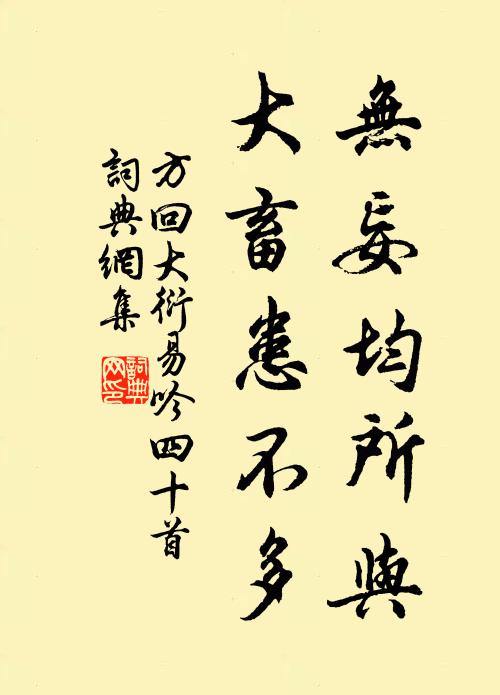 無妄均所與
大畜患不多
方回大衍易吟四十首
詞典網集
詞典網印